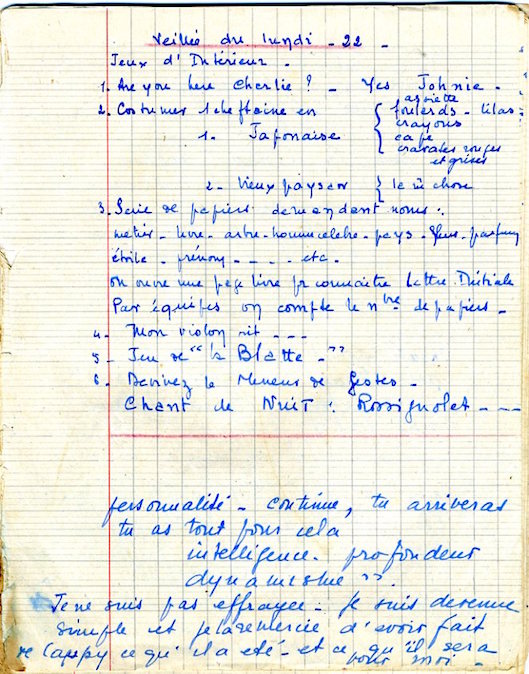 Veillée du lundi - 22 -
Jeux d'Intérieur -
1. Are you here Charlie ? - Yes Johnie -
2. Costumer 1 cheftaine en
1. Japonaise
assiette
foulards - lilas
crayons
cape
cravates rouges
et grises
2 - Vieux paysan
la m chose
3. Série de papiers demandant noms :
métier - livre - arbre - homme célèbre - pays - fleur - parfum
étoile - prénom - - - - etc -
on ouvre une page livre pr connaitre Lettre Initiale
Par équipes on compte le nbre de papiers -
4 - Mon violon rit - - -
5 - Jeu de "la Blatte - "
6 - Devinez le Meneur de Gestes -
Chant de Nuit : Rossignolet - - -
personnalité - continue, tu arriveras
tu as tout pour cela
intelligence - profondeur
dynamisme ".
Je ne suis pas effrayée - je suis devenue
simple et je remercie d'avoir fait
de Cappy ce qu'il a été - et ce qu'il sera
pour moi -